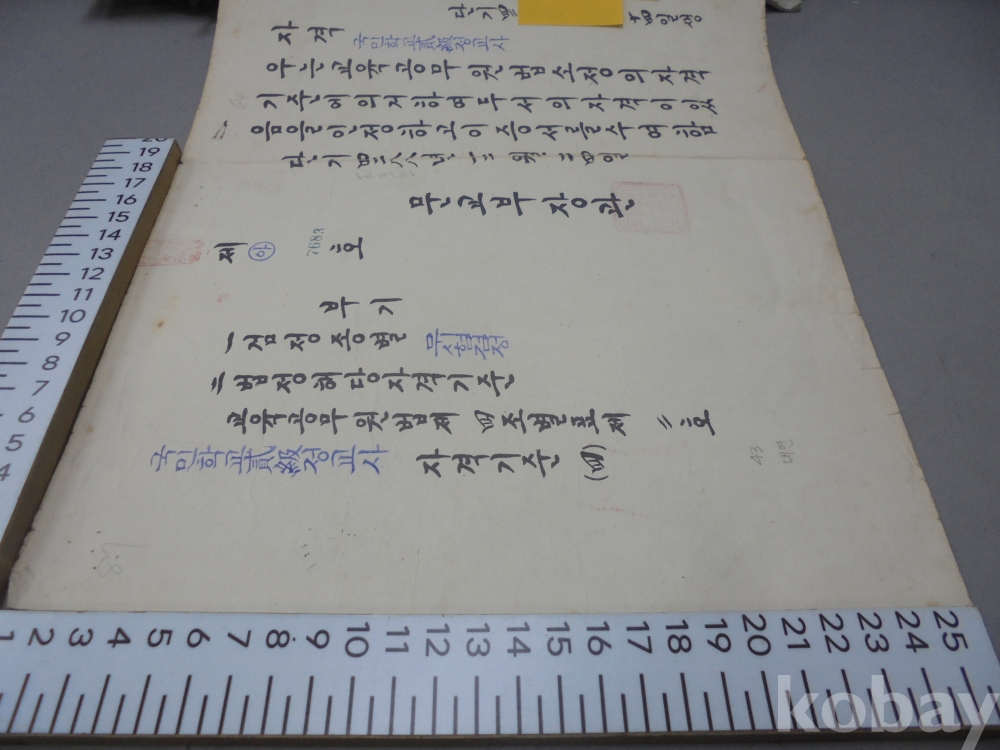 단기四
十四일생
자격 국민학교貳級정교사
우는교육공무원법소정의자격
기준에의거하여두서의자격이있
음을인정하고이증서를수여함
단기四二八八년一二월二四일
문교부장관
제 아 7683 호
부기
一검정종별 무시험검정
二법정해당자격기준
교육공무원법제四조별표제 二호
국민학교貳級정교사 자격기준(四)
43
대면
20
19
18
17
16
15
14
13
12
11
10
9
8
7
6
5
4
1 2 3 4 5 6 7 8 9 10 11 12 13 14 15 16 17 18 19 20 21 22 23 24 25
kobay